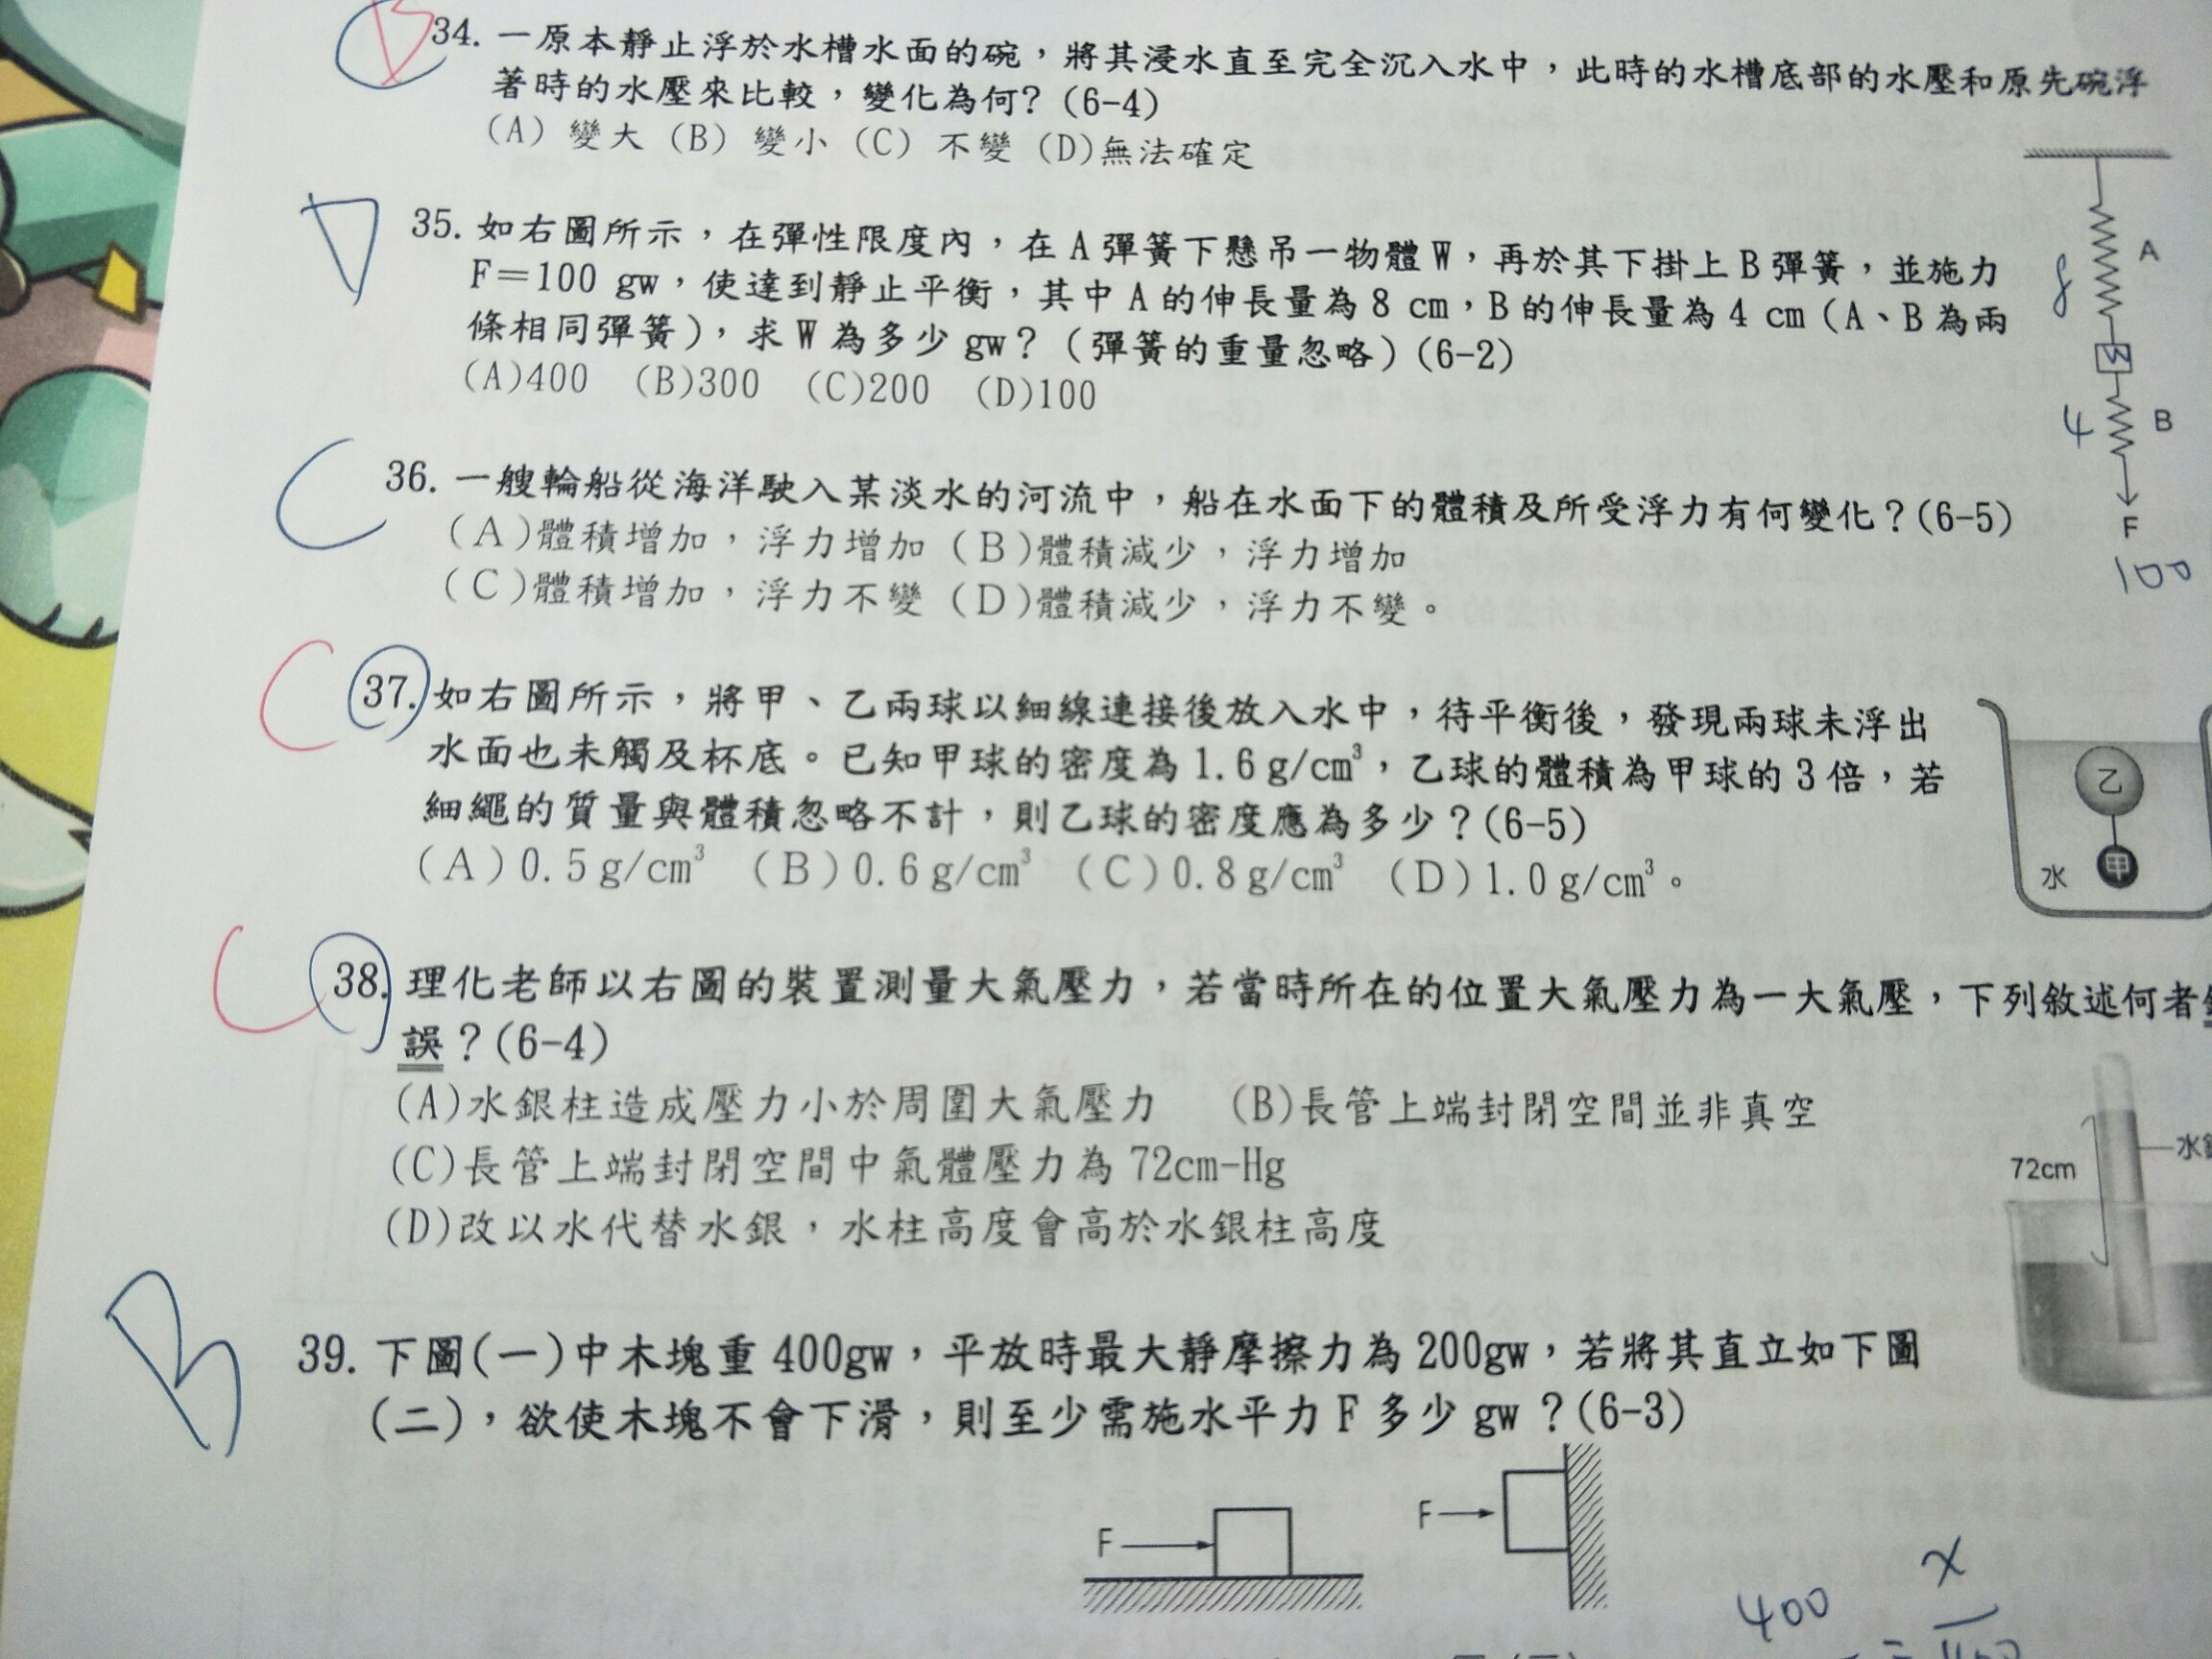 B
34. 一原本靜止浮於水槽水面的碗，將其浸水直至完全沉入水中，此時的水槽底部的水壓和原先碗浮
著時的水壓來比較，變化為何？(6-4)
(A) 變大 (B) 變小 (C) 不變 (D)無法確定
D
35. 如右圖所示，在彈性限度內，在 A 彈簧下懸吊一物體 W，再於其下掛上 B 彈簧，並施力
F＝100 gw，使達到靜止平衡，其中 A 的伸長量為 8 cm，B 的伸長量為 4 cm（A、B 為兩
條相同彈簧），求 W 為多少 gw？（彈簧的重量忽略）(6-2)
(A)400 (B)300 (C)200 (D)100
A
8
W
4
B
F
100
C
36. 一艘輪船從海洋駛入某淡水的河流中，船在水面下的體積及所受浮力有何變化？(6-5)
(A)體積增加，浮力增加 (B)體積減少，浮力增加
(C)體積增加，浮力不變 (D)體積減少，浮力不變。
C
37. 如右圖所示，將甲、乙兩球以細線連接後放入水中，待平衡後，發現兩球未浮出
水面也未觸及杯底。已知甲球的密度為 1.6 g/cm³，乙球的體積為甲球的 3 倍，若
細繩的質量與體積忽略不計，則乙球的密度應為多少？(6-5)
(A)0.5 g/cm³ (B)0.6 g/cm³ (C)0.8 g/cm³ (D)1.0 g/cm³。
乙
甲
水
C
38. 理化老師以右圖的裝置測量大氣壓力，若當時所在的位置大氣壓力為一大氣壓，下列敘述何者
誤？(6-4)
(A)水銀柱造成壓力小於周圍大氣壓力 (B)長管上端封閉空間並非真空
(C)長管上端封閉空間中氣體壓力為 72cm-Hg
(D)改以水代替水銀，水柱高度會高於水銀柱高度
水
72cm
B
39. 下圖(一)中木塊重 400gw，平放時最大靜摩擦力為 200gw，若將其直立如下圖
(二)，欲使木塊不會下滑，則至少需施水平力 F 多少 gw？(6-3)
F
F
400
x